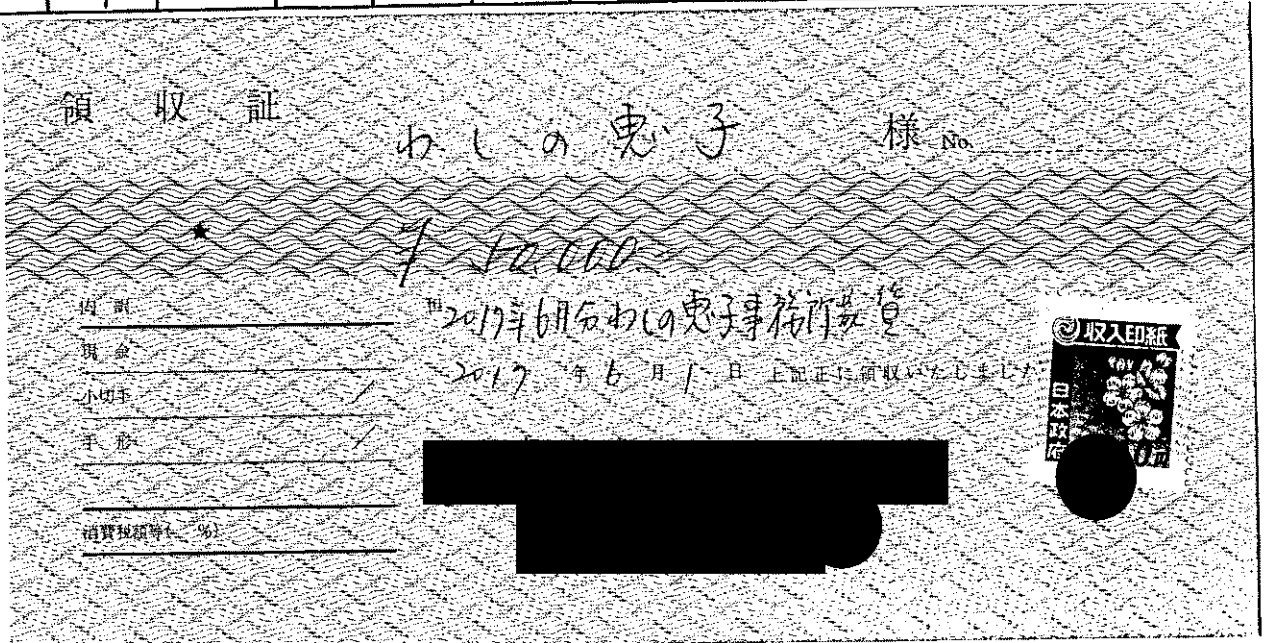 領収証
わしの恵子 様 No.
★
¥50,000.-
内訳
但 2017年6月分わしの恵子事務所家賃
現金
2017年6月1日 上記正に領収いたしました
小切手 /
手形 /
消費税額等( %)
収入印紙
日本政府